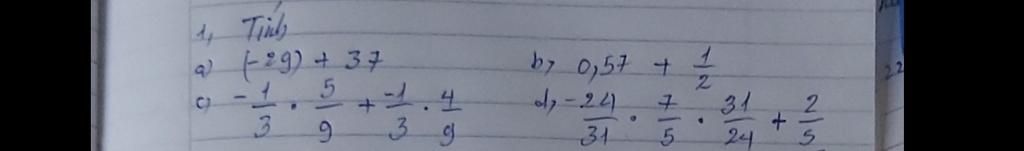 1, Tính
a) (-29) + 37 b, 0,57 + 1/2
c, -1/3 . 5/9 + -1/3 . 4/9 d, -24/31 . 7/5 . 31/24 + 2/5